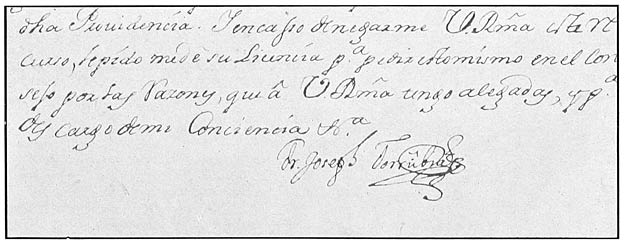 dha Providencia. Y encasso denegarme V.Rma este re
curso, lepido mede su Licencia pa pedir estomismo en el Con
sejo por las Razones, que â V.Rma tengo alegadas, y pa
descargo de mi Conciencia &a
Fr. Joseph Torrubia